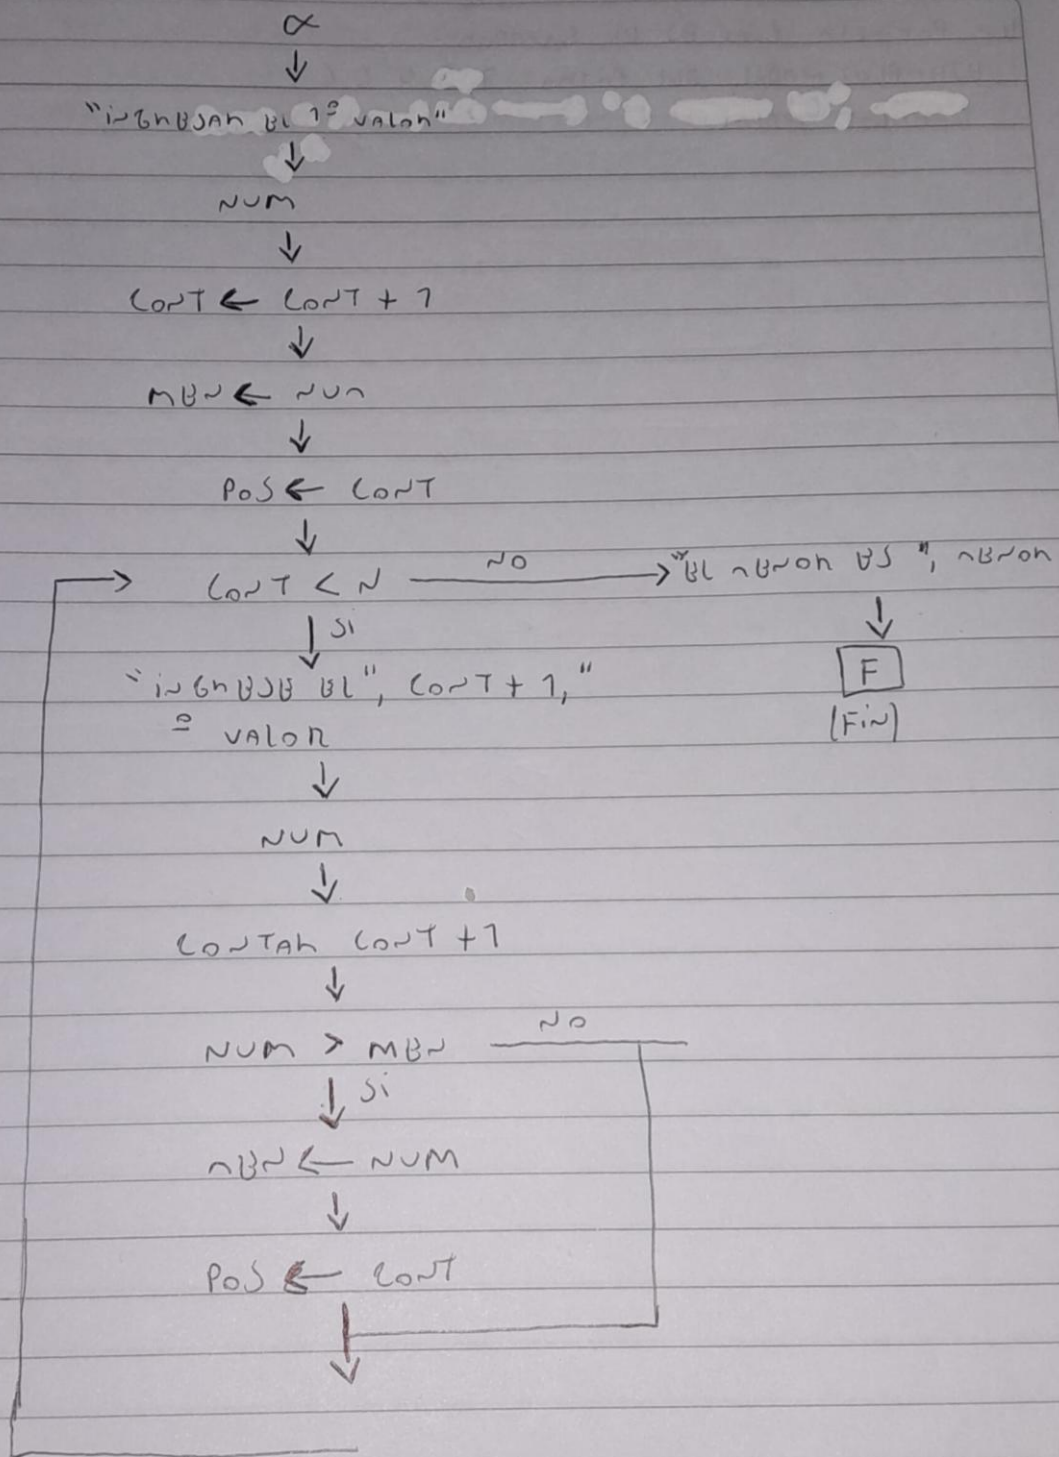 α
↓
"iNGRESAR EL 1º VALOR"
↓
NUM
↓
CONT ← CONT + 1
↓
MEN ← NUM
↓
POS ← CONT
↓
NO
CONT < N → "EL MENOR ES ", MENOR
↓ Si
"iNGRESE EL", CONT + 1,"
º VALOR
↓
F
(FiN)
↓
NUM
↓
CONTAR CONT +1
↓
NUM > MEN NO
↓ Si
MEN ← NUM
↓
POS ← CONT
↓